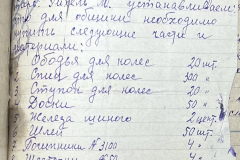 устанавливаем:
что для общины необходимо
следующие части и
материалы:
1 Ободья для колес 20 шт.
2 Спиц для колес 300 "
3 Ступок для колес 20 "
4 Доски 50 "
5 Железа шинного 2 цент.
6 Шлей 50 шт.
7 Подшипники №3100 4 "